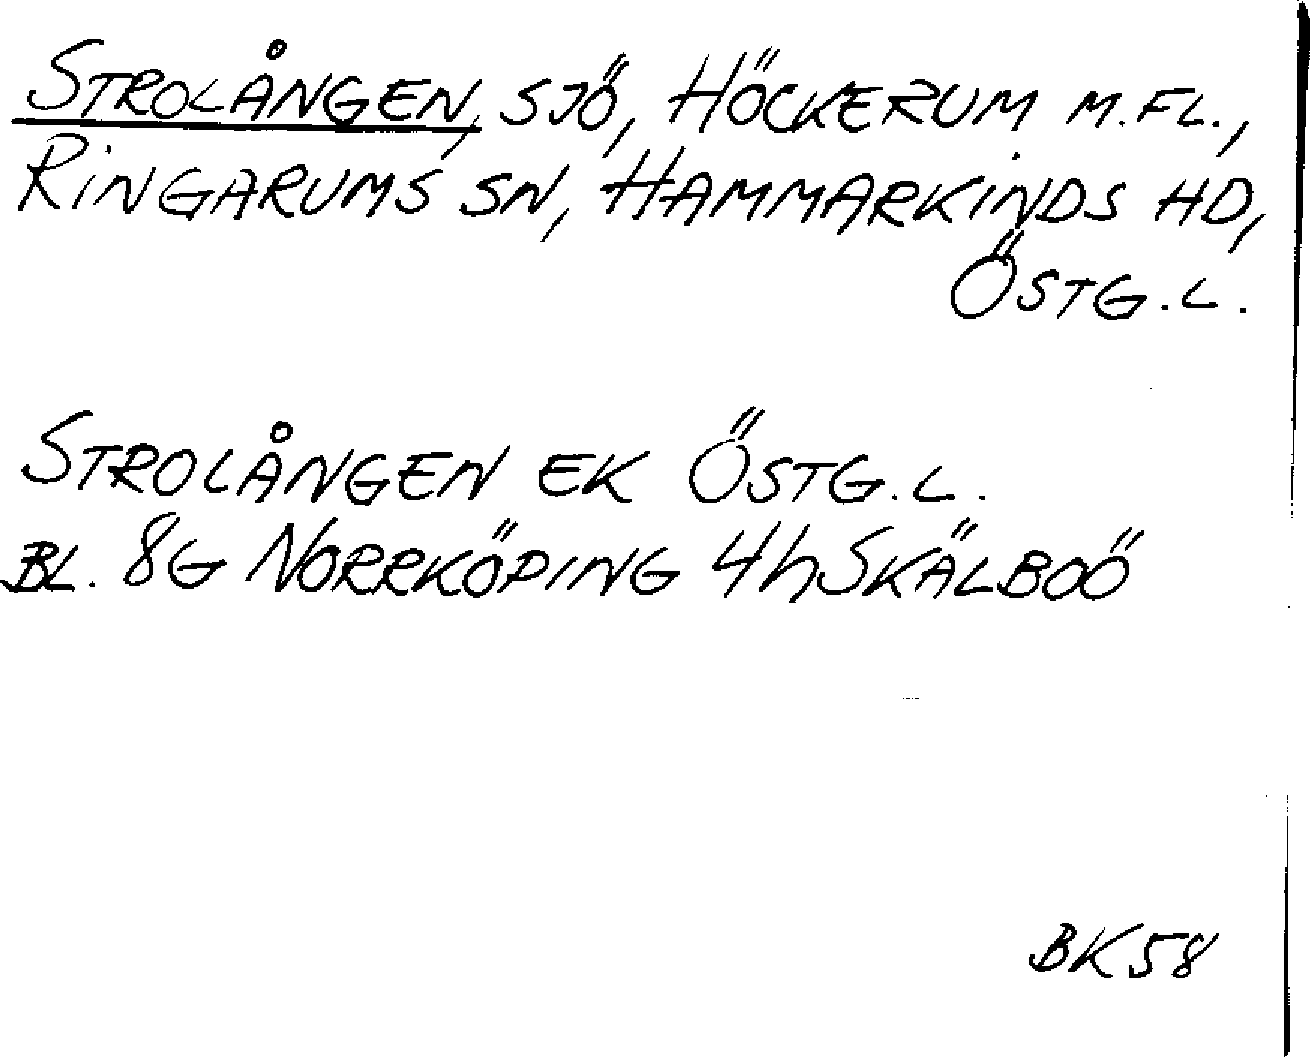 STROLÅNGEN, SJÖ, HÖCKERUM M.FL.,
RINGARUMS SN, HAMMARKINDS HD,
ÖSTG.L.
STROLÅNGEN EK ÖSTG.L.
BL. 8G NORRKÖPING 4h SKÄLBOÖ
BK58